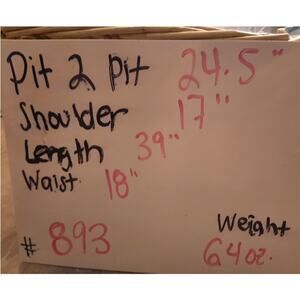 Pit 2 Pit 24.5"
Shoulder 17"
Length 39"
Waist 18"
# 893
Weight
64oz.